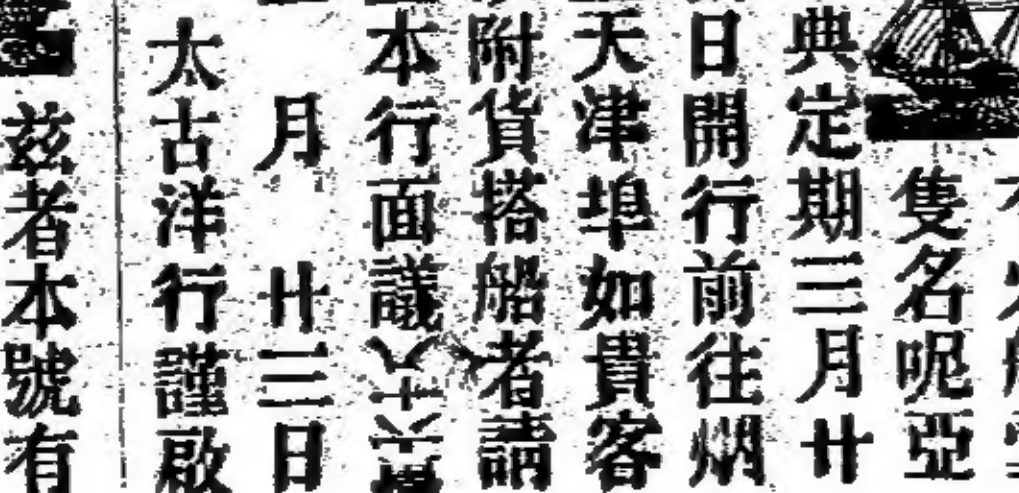 隻名呢亞
典定期三月廿
日開行前往烟
天津埠如貴客
附貨搭船者請
本行面議
月廿三日
太古洋行謹啟
茲者本號有